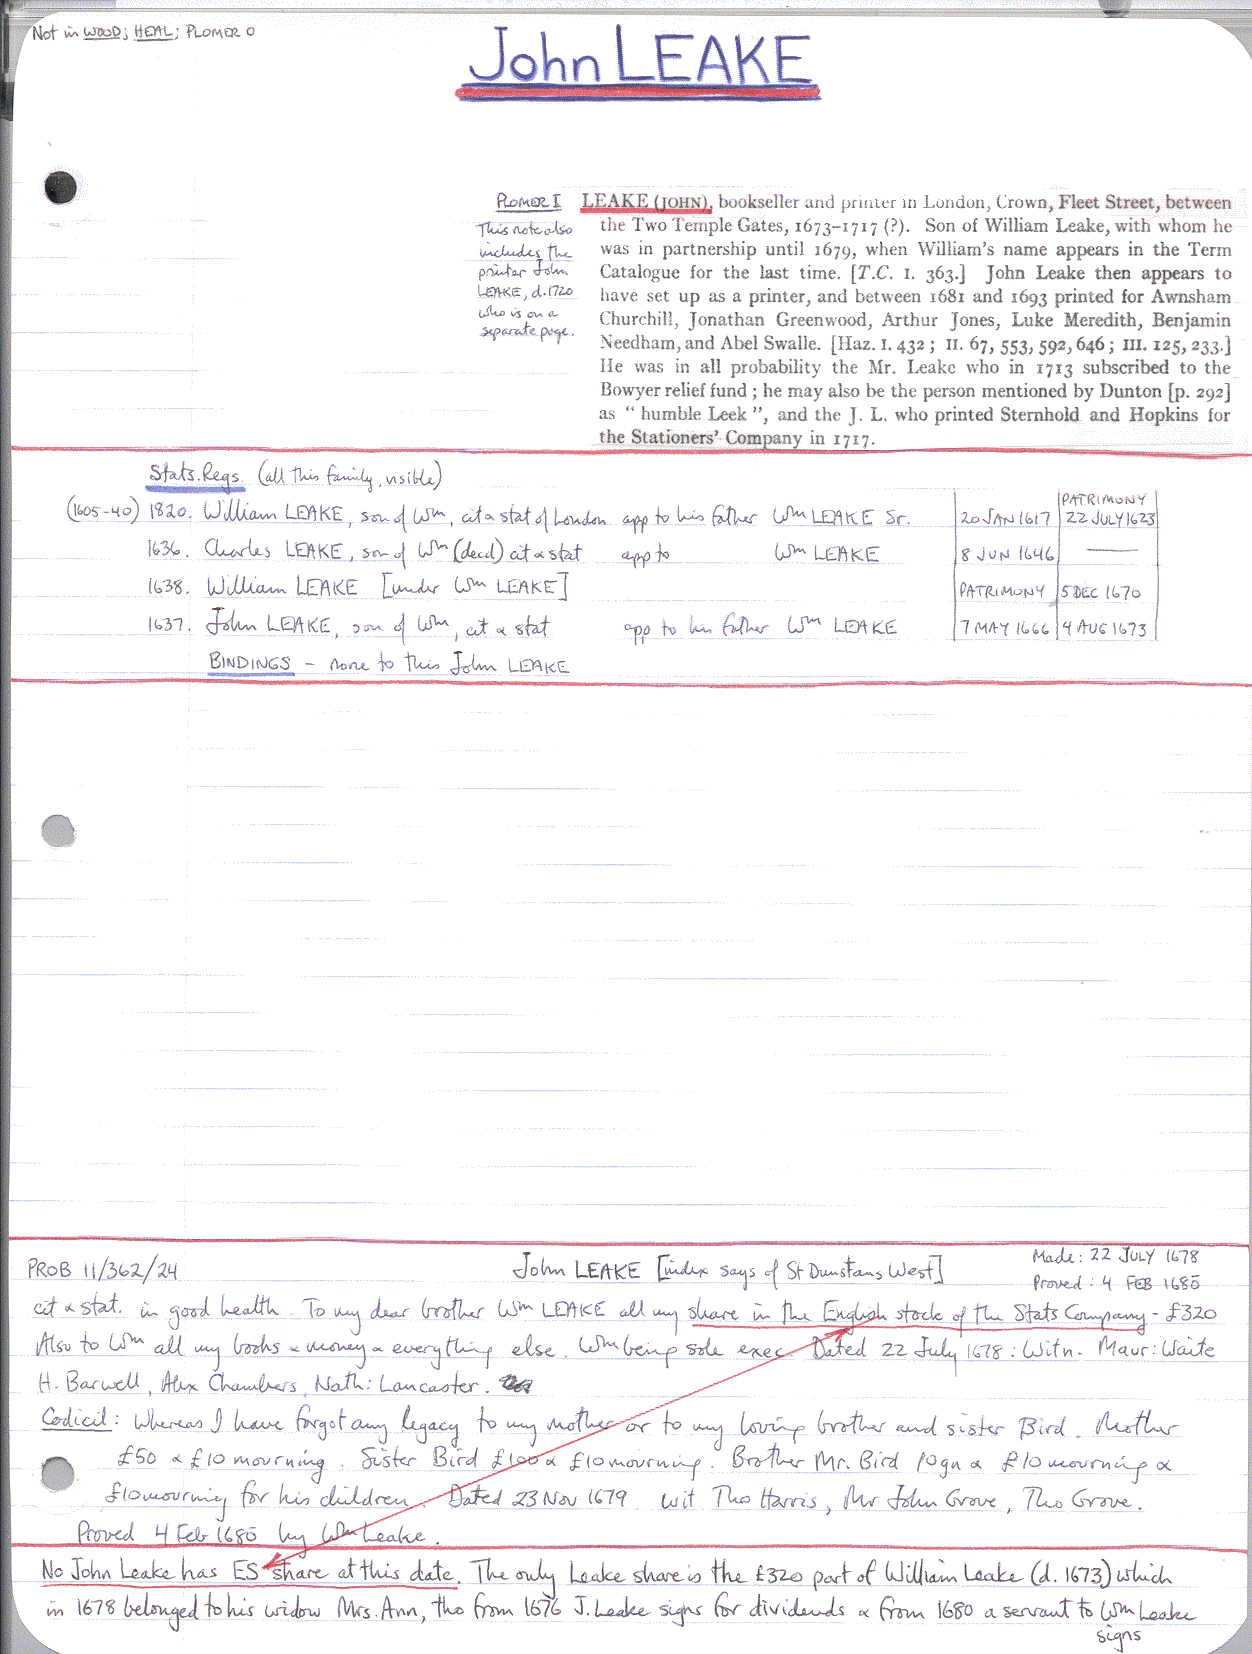 Not in WOOD; HEAL; PLOMER O
John LEAKE
PLOMER I
This note also
includes the
printer John
LEAKE, d.1720
who is on a
separate page.
LEAKE (JOHN), bookseller and printer in London, Crown, Fleet Street, between
the Two Temple Gates, 1673–1717 (?). Son of William Leake, with whom he
was in partnership until 1679, when William's name appears in the Term
Catalogue for the last time. [T.C. I. 363.] John Leake then appears to
have set up as a printer, and between 1681 and 1693 printed for Awnsham
Churchill, Jonathan Greenwood, Arthur Jones, Luke Meredith, Benjamin
Needham, and Abel Swalle. [Haz. I. 432 ; II. 67, 553, 592, 646 ; III. 125, 233.]
He was in all probability the Mr. Leake who in 1713 subscribed to the
Bowyer relief fund ; he may also be the person mentioned by Dunton [p. 292]
as " humble Leek ", and the J. L. who printed Sternhold and Hopkins for
the Stationers' Company in 1717.
Stats. Regs. (all this family, visible)
PATRIMONY
(1605-40) 1820. William LEAKE, son of Wm, cit & stat of London app to his father Wm LEAKE Sr. 20 JAN 1617 22 JULY 1623
1636. Charles LEAKE, son of Wm (decd) cit & stat app to Wm LEAKE 8 JUN 1646 ——
1638. William LEAKE [under Wm LEAKE] PATRIMONY 5 DEC 1670
1637. John LEAKE, son of Wm, cit & stat app to his father Wm LEAKE 7 MAY 1666 4 AUG 1673
BINDINGS – none to this John LEAKE
PROB 11/362/24 John LEAKE [index says of St Dunstans West] Made: 22 JULY 1678
Proved: 4 FEB 1680
cit & stat. in good health. To my dear brother Wm LEAKE all my share in the English stock of the Stats Company – £320
Also to Wm all my books & money & everything else. Wm being sole exec. Dated 22 July 1678: Witn. Maur: Waite
H. Barwell, Alex Chambers, Nath: Lancaster.
Codicil: Whereas I have forgot any legacy to my mother or to my loving brother and sister Bird. Mother
£50 & £10 mourning. Sister Bird £100 & £10 mourning. Brother Mr. Bird 10gn & £10 mourning &
£10 mourning for his children. Dated 23 Nov 1679 wit Tho Harris, Mr John Grove, Tho Grove.
Proved 4 Feb 1680 by Wm Leake.
No John Leake has ES share at this date. The only Leake share is the £320 part of William Leake (d. 1673) which
in 1678 belonged to his widow Mrs. Ann, tho from 1676 J. Leake signs for dividends & from 1680 a servant to Wm Leake
signs